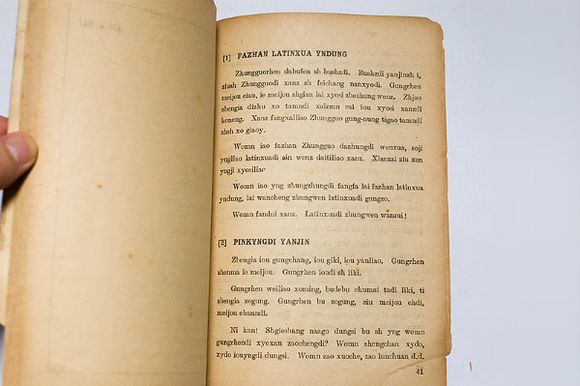 [1] FAZHAN LATINXUA YNDUNG
Zhungguorhen dabufen sh bushzdi. Bushzdi yanjinsh i,
zhush Zhungguodi xanz sh feichang nanxyodi. Gungrhen
meijou cian, ie meijou shgian lai xyosi zhezhung wenz. Zhjou
shengia dizhu xo tamndi xaizmn cai iou xyosi xanzdi
keneng. Xanz fangxailiao Zhungguo gung-nung tigao tamndi
zhsh xo giaoy.
Womn iao fazhan Zhungguo dazhungdi wenxua, soji
yngliao latinxuadi sin wenz daitiliao xanz. Xianzai ziu xen
yngji xyosiliao
Womn iao yng zhungzhungdi fangfa lai fazhan latinxua
yndung, lai wancheng zhungwen latinxuadi gungzo.
Womn fandui xanz. Latinxuadi zhungwen wansui!
[2] PINKYNGDI YANJIN
Zhengia iou gungchang, iou giki, iou yanliao. Gungrhen
shenma ie meijou. Gungrhen ioudi sh liki.
Gungrhen weiliao xoming, budebu chumai tadi liki, ti
shengia zogung. Gungrhen bu zogung, ziu meijou chdi,
meijou chuandi.
Ni kan! Shgieshang naago dungsi bu sh yng womn
gungrhendi xyoxan zaochengdi? Womn shengchan xydo,
xydo iouyngdi dungsi. Womn zao xuoche, zao lunchuan d.d.
41